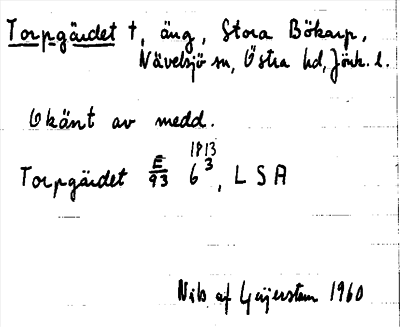 Torpgärdet †, äng, Stora Bökarp,
Nävelsjö sn, Östra hd, Jönk. l.
Okänt av medd.
1813
Torpgärdet E/93 6³, LSA
Nils af Geijerstam 1960